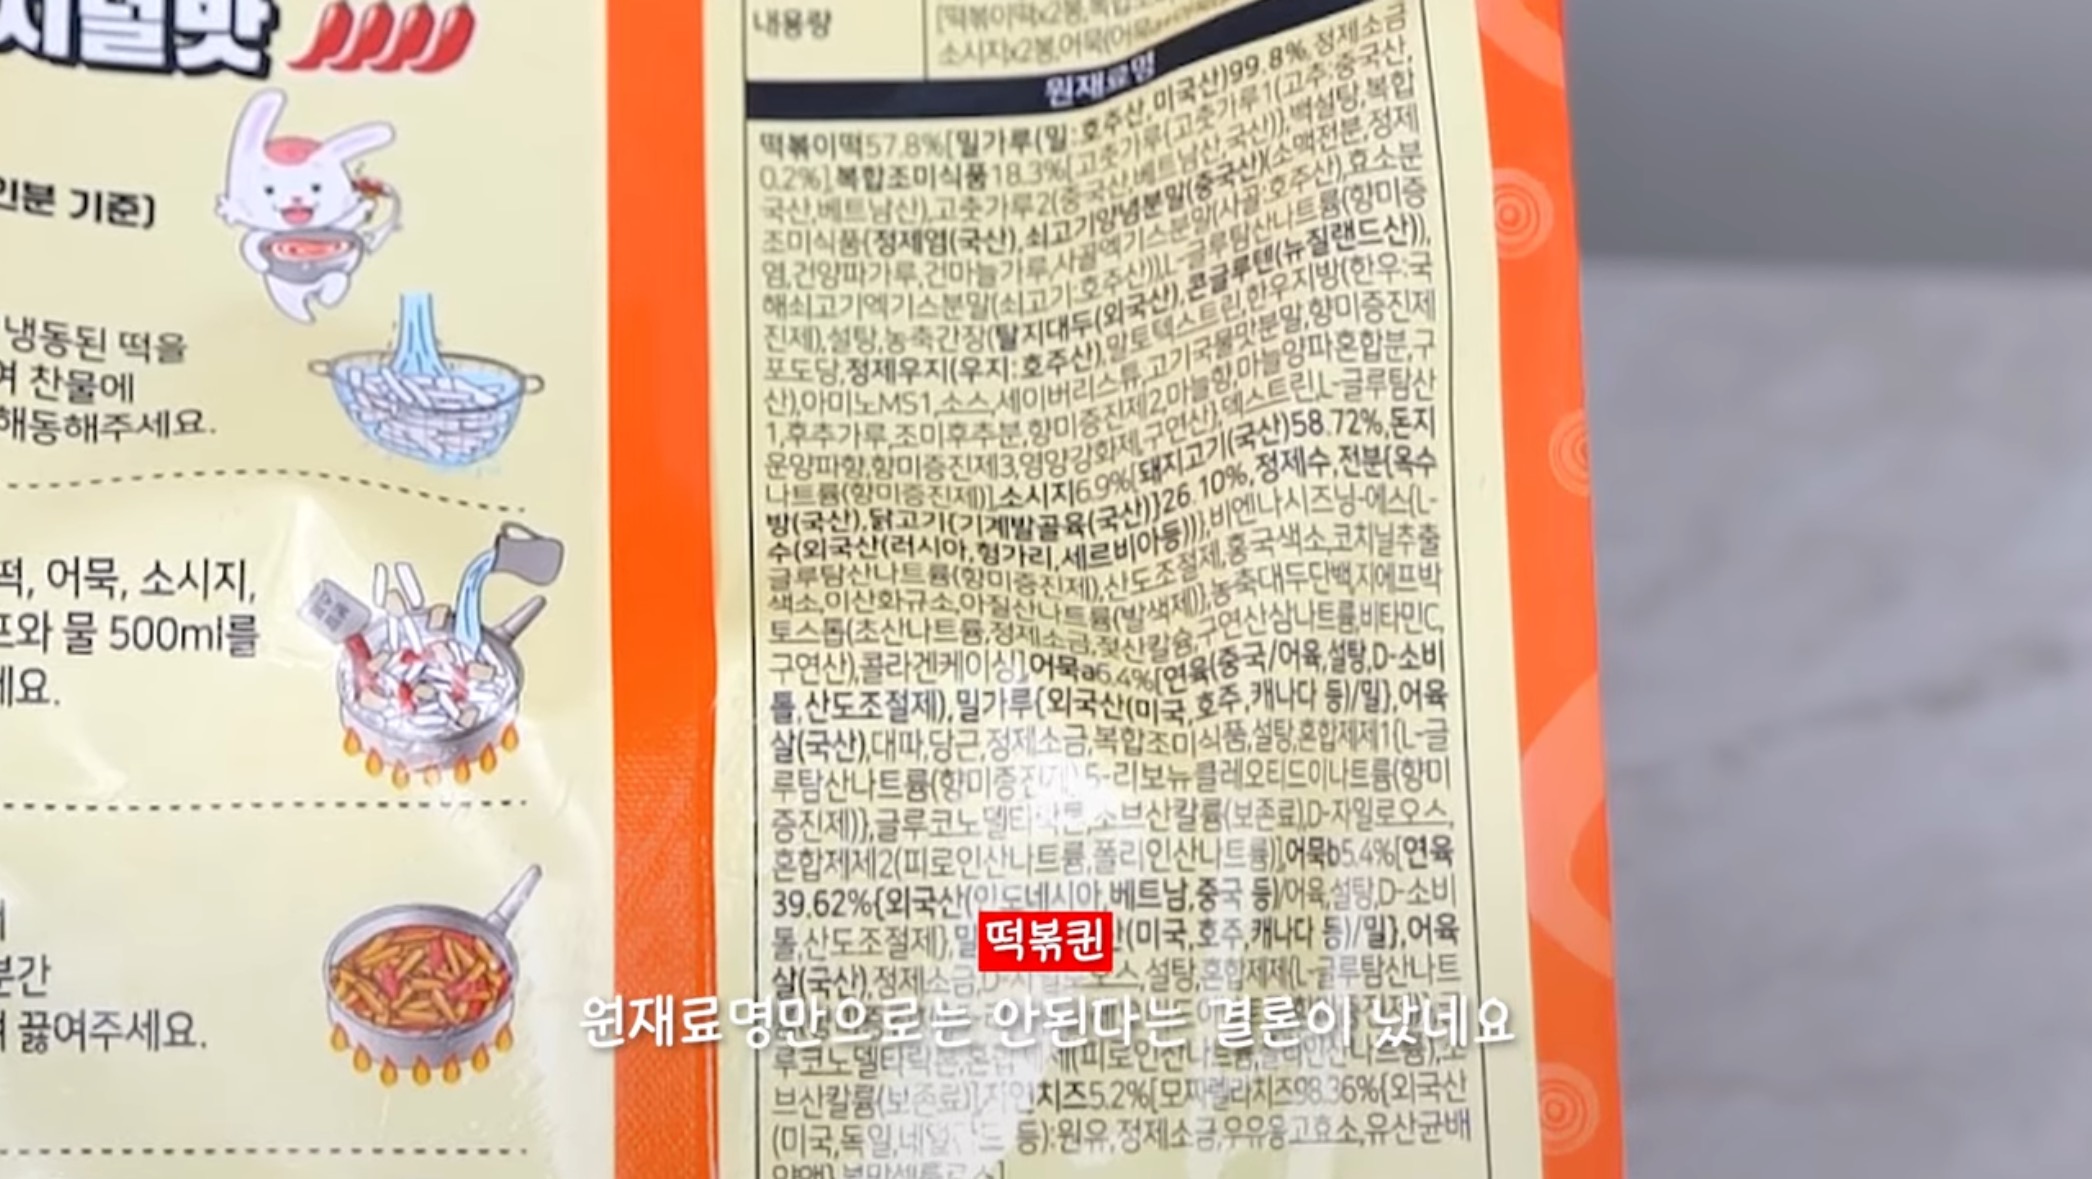 지널맛
인분 기준)
냉동된 떡을
여 찬물에
해동해주세요.
떡, 어묵, 소시지,
프와 물 500ml를
세요.
분간
끓여주세요.
내용량
[떡볶이떡x2봉,복합조
소시지x2봉,어묵(어묵
원재료명
떡볶이떡57.8%[밀가루(밀:호주산,미국산)99.8%,정제소금
0.2%],복합조미식품18.3%[고춧가루{고춧가루1(고추:중국산,
국산,베트남산),고춧가루2(중국산,베트남산,국산)},백설탕,복합
조미식품{정제염(국산),쇠고기양념분말(중국산)(소맥전분,정제
염,건양파가루,건마늘가루,사골엑기스분말(사골:호주산),효소분
해쇠고기엑기스분말(쇠고기:호주산)),L-글루탐산나트륨(향미증
진제),설탕,농축간장(탈지대두(외국산),콘글루텐(뉴질랜드산)),
포도당,정제우지(우지:호주산),말토덱스트린,한우지방(한우:국
산),아미노MS1,소스,세이버리스튜,고기국물맛분말,향미증진제
1,후추가루,조미후추분,향미증진제2,마늘향,마늘양파혼합분,구
운양파향,향미증진제3,영양강화제,구연산},덱스트린,L-글루탐산
나트륨(향미증진제)],소시지6.9%[돼지고기(국산)58.72%,돈지
방(국산),닭고기{기계발골육(국산)}26.10%,정제수,전분{옥수
수(외국산(러시아,헝가리,세르비아등))},비엔나시즈닝-에스{L-
글루탐산나트륨(향미증진제),산도조절제,홍국색소,코치닐추출
색소,이산화규소,아질산나트륨(발색제)},농축대두단백,지에프박
토스톱(초산나트륨,정제소금,젖산칼슘,구연산삼나트륨,비타민C,
구연산),콜라겐케이싱],어묵a6.4%[연육(중국/어육,설탕,D-소비
톨,산도조절제),밀가루{외국산(미국,호주,캐나다 등)/밀},어육
살(국산),대파,당근,정제소금,복합조미식품,설탕,혼합제제1{L-글
루탐산나트륨(향미증진제),5-리보뉴클레오티드이나트륨(향미
증진제)},글루코노델타락톤,소브산칼륨(보존료),D-자일로오스,
혼합제제2(피로인산나트륨,폴리인산나트륨)],어묵b5.4%[연육
39.62%{외국산(인도네시아,베트남,중국 등)/어육,설탕,D-소비
톨,산도조절제},밀 (미국,호주,캐나다 등)/밀},어육
떡볶퀸
살(국산),정제소금,D-자일로오스,설탕,혼합제제{L-글루탐산나트
원재료명만으로는 안된다는 결론이 났네요
루코노델타락톤,혼합제제(피로인산나트륨,폴리인산나트륨),소
브산칼륨(보존료)],자연치즈5.2%[모짜렐라치즈98.36%{외국산
(미국,독일,네덜란드 등):원유,정제소금,우유응고효소,유산균배